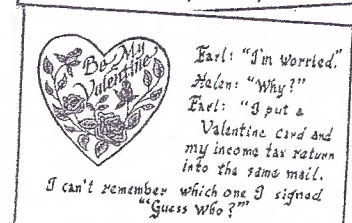 Be My
Valentine
Earl: "I'm worried."
Helen: "Why?"
Earl: "I put a
Valentine card and
my income tax return
into the same mail.
I can't remember which one I signed
"Guess Who?""